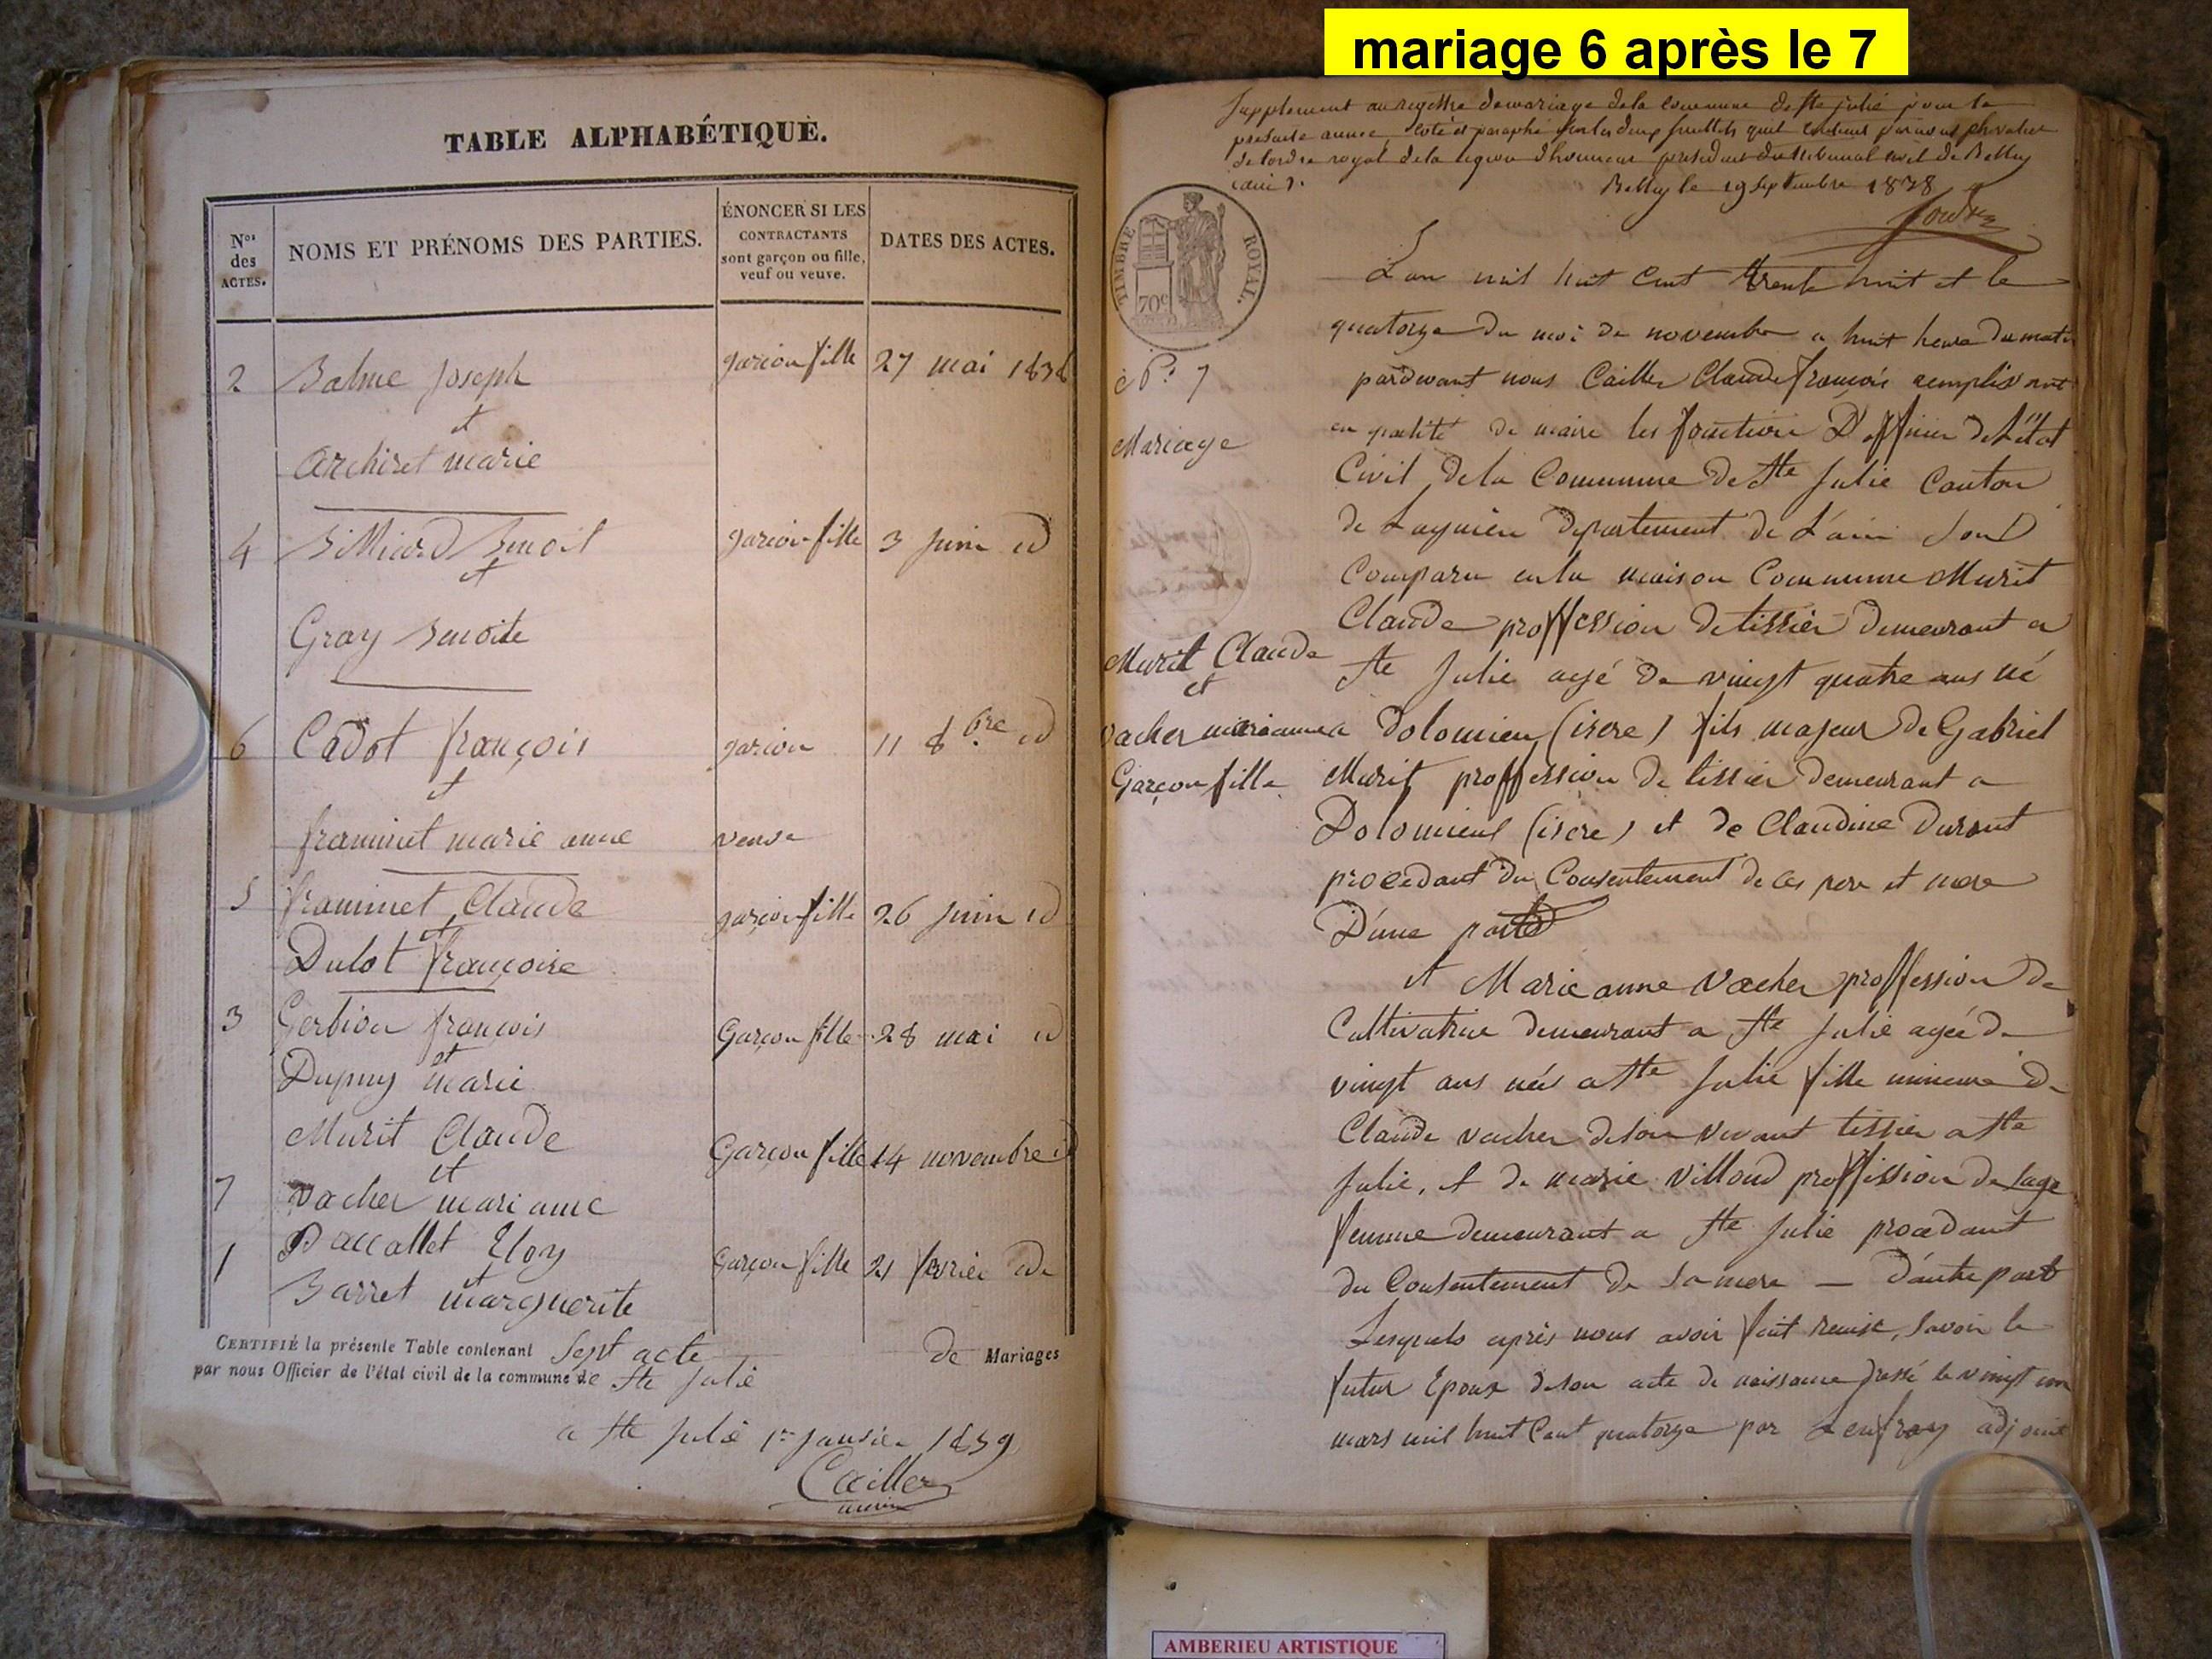 mariage 6 après le 7
TABLE ALPHABÉTIQUE.
Nos des ACTES.
NOMS ET PRÉNOMS DES PARTIES.
ÉNONCER SI LES CONTRACTANTS sont garçon ou fille, veuf ou veuve.
DATES DES ACTES.
2 Balme Joseph garçon fille 27 mai 1838
et
Archiret marie
4 Billiard Benoit garçon fille 3 juin id
et
Gray Benoite
6 Cadot françois garçon 11 8bre id
et
framinet marie anne veuve
5 framinet Claude garçon fille 26 juin id
et
Dulot françoise
3 Gerbion françois Garçon fille 28 mai id
et
Dupuy marie
Murit Claude Garçon fille 14 novembre id
et
7 vacher mari anne
1 Paccallet Eloy Garçon fille 21 fevrier id
et
Barret marguerite
CERTIFIÉ la présente Table contenant Sept acte de Mariages
par nous Officier de l'état civil de la commune de Ste Julie
a Ste Julie 1er janvier 1839
Cailler
maire
Supplement au registre de mariage de la commune de Ste julie pour la
presente année, coté et paraphé sur les deux feuillets quil contient par nous chevalier
de lordre royal de la legion dhonneur president du tribunal civil de Belley
Belley le 19 septembre 1838
TIMBRE ROYAL.
70c
L'an mil huit cent trente huit et le
quatorze du moi de novembre a huit heure du matin
N° 7
pardevant nous Cailler Claude françois remplissant
en qualité de maire les fonction D'officier de L'état
Mariage
Civil de la Commune de Ste Julie Canton
de Lagnieu departement de L'ain Sont
Comparu en la maison Commune Murit
Claude proffession de tissier demeurant a
Murit Claude
et
vacher marianne
Garçon fille
Ste Julie agé de vingt quatre ans né
a Dolomieu (isere) fils majeur de Gabriel
Murit proffession de tissier demeurant a
Dolomieu (isere) et de Claudine Durant
procedant du Consentement de ces pere et mere
D'une part
et Marie anne Vacher proffession de
Cultivatrice demeurant a Ste Julie agée de
vingt ans née a Ste Julie fille mineure de
Claude vacher de son vivant tissier a Ste
Julie, et de marie Villoud proffission de sage
femme demeurant a Ste Julie procedant
du Consentement de sa mere — d'autre part
Lesquels après nous avoir fait remise, savoir le
futur Epoux de son acte de naissance dressé le vingt un
mars mil huit Cent quatorze par Lenfrey adjoint
AMBERIEU ARTISTIQUE